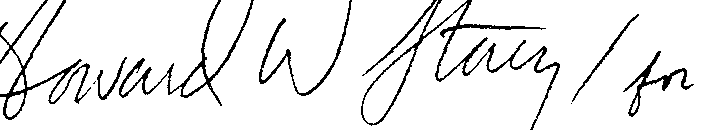 Howard W Stacy / for